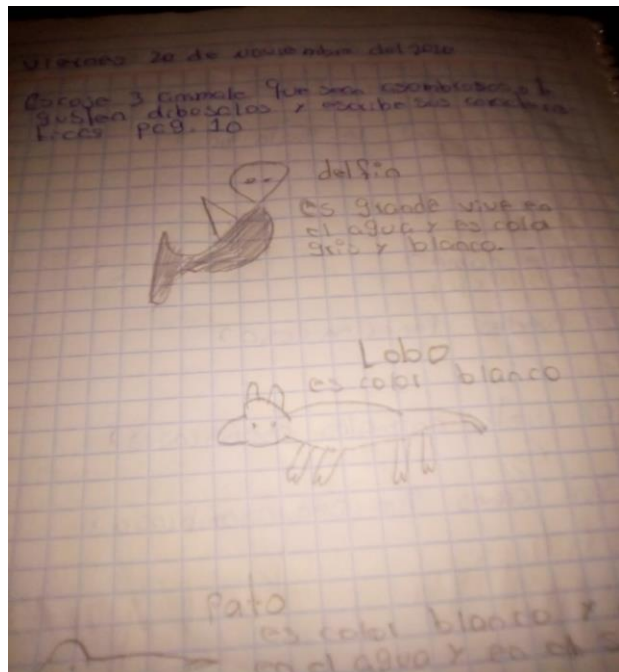 viernes 20 de noviembre del 2020
Escoje 3 animale que sean asombrosos o t
gusten dibosalos y escribe sus caracteris
ticas pag. 10
delfin
es grande vive en
el agua y es cola
gris y blanco.
Lobo
es color blanco
Pato
es color blanco y
en el agua y en el s